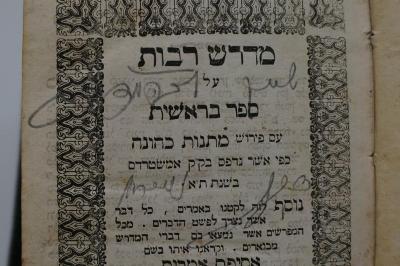 מדרש רבות
על
ספר בראשית
עם פירוש מתנות כהונה
כפי אשר נדפס בק״ק אמשטרדם
בשנת ת״א
נוסף לזה לקטנו באמרים . כל דבר
אשר נצרך לפשט הדברים . מכל
המפרשים אשר נמצאו בם דברי המדרש
מבוארים . וקראנו אותו בשם